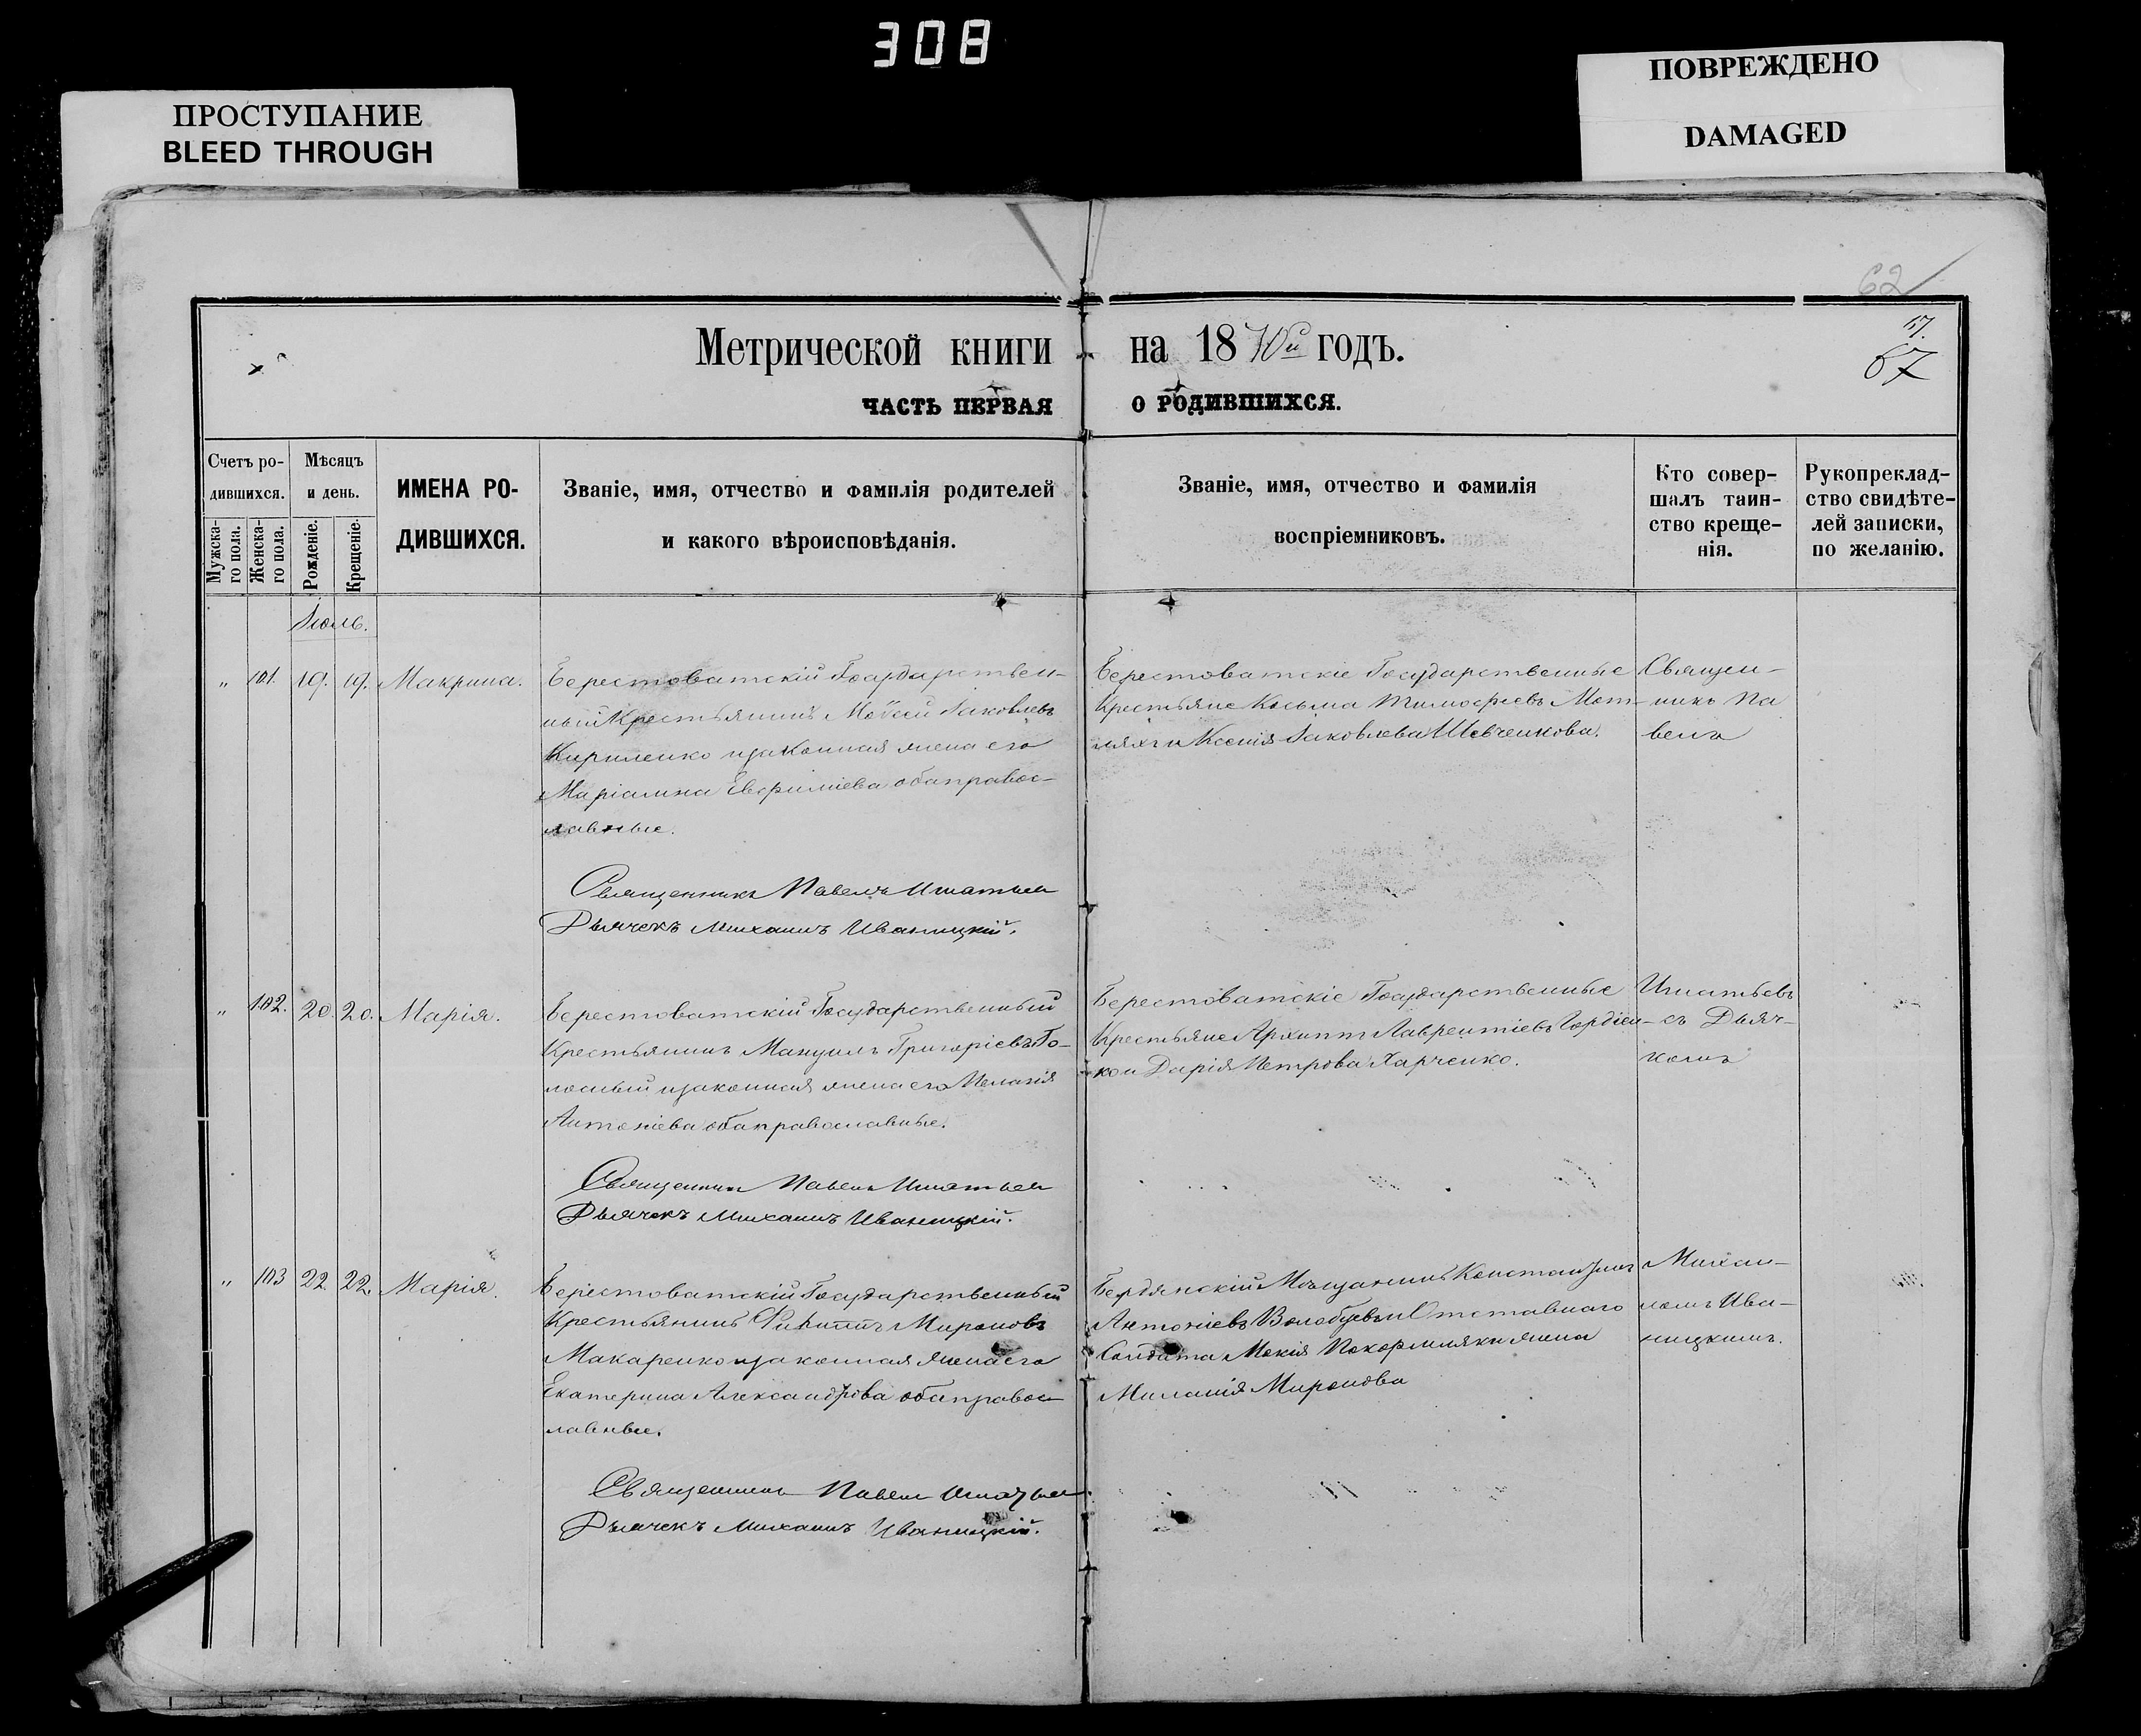 308
ПРОСТУПАНИЕ
BLEED THROUGH
ПОВРЕЖДЕНО
DAMAGED
62
67
Метрической книги на 1870й годъ.
ЧАСТЬ ПЕРВАЯ О РОДИВШИХСЯ.
Счетъ ро-
дившихся.
Мужска-
го пола.
Женска-
го пола.
Мѣсяцъ
и день.
Рожденіе.
Крещеніе.
ИМЕНА РО-
ДИВШИХСЯ.
Званіе, имя, отчество и фамилія родителей
и какого вѣроисповѣданія.
Званіе, имя, отчество и фамилія
воспріемниковъ.
Кто совер-
шалъ таин-
ство креще-
нія.
Рукоприклад-
ство свидѣте-
лей записки,
по желанію.
Іюль.
„ 101. 19. 19. Макрина.
Берестоватскій Государствен-
ный Крестьянинъ Мойсей Іаковлевъ
Кириленко и законная жена его
Маріамна Евфиміева оба правос-
лавные.
Священникъ Павелъ Игнатьев
Дьячекъ Михаилъ Иваницкій.
Берестоватскіе Государственные
Крестьяне Косьма Тимофеевъ
и Ксенія Іаковлева Шевченкова.
Священ-
никъ Па
велъ
„ 102. 20. 20. Марія.
Берестоватскій Государственный
Крестьянинъ Мануилъ Григоріевъ Го-
лосный и законная жена его Пелагія
Антоніева оба православные.
Священник Павелъ Игнатьев
Дьячекъ Михаилъ Иваницкій.
Берестоватскіе Государственные
Крестьяне Архиппъ Лаврентіевъ Гордіен-
ко и Дарія Петрова Харченко.
Игнатьевъ
съ Дьяч-
комъ
„ 103 22. 22. Марія.
Берестоватскій Государственный
Крестьянинъ Филиппъ Мироновъ
Макаренко и законная жена его
Екатерина Александрова оба правос-
лавные.
Священник Павел Игнатьев
Дьячекъ Михаилъ Иваницкій.
Бердянскій Мѣщанинъ Константинъ
Антоніевъ и Отставнаго
Солдата Мокія жена
Миланія Миронова
Михаи-
ломъ Ива-
ницкимъ.